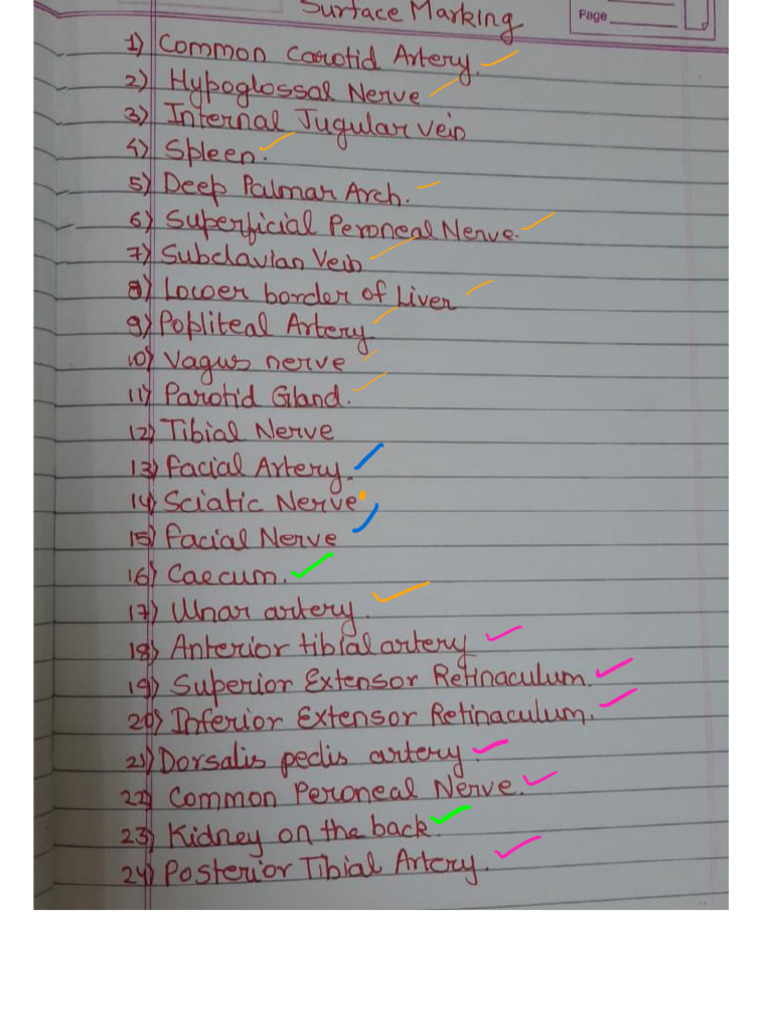 Surface Marking
Page
1) Common Carotid Artery.
2) Hypoglossal Nerve
3) Internal Jugular vein
4) Spleen.
5) Deep Palmar Arch.
6) Superficial Peroneal Nerve.
7) Subclavian Vein
8) Lower border of Liver
9) Popliteal Artery
10) Vagus nerve
11) Parotid Gland.
12) Tibial Nerve
13) Facial Artery.
14) Sciatic Nerve
15) Facial Nerve
16) Caecum.
17) Ulnar artery.
18) Anterior tibial artery
19) Superior Extensor Retinaculum.
20) Inferior Extensor Retinaculum.
21) Dorsalis pedis artery.
22) Common Peroneal Nerve.
23) Kidney on the back.
24) Posterior Tibial Artery.